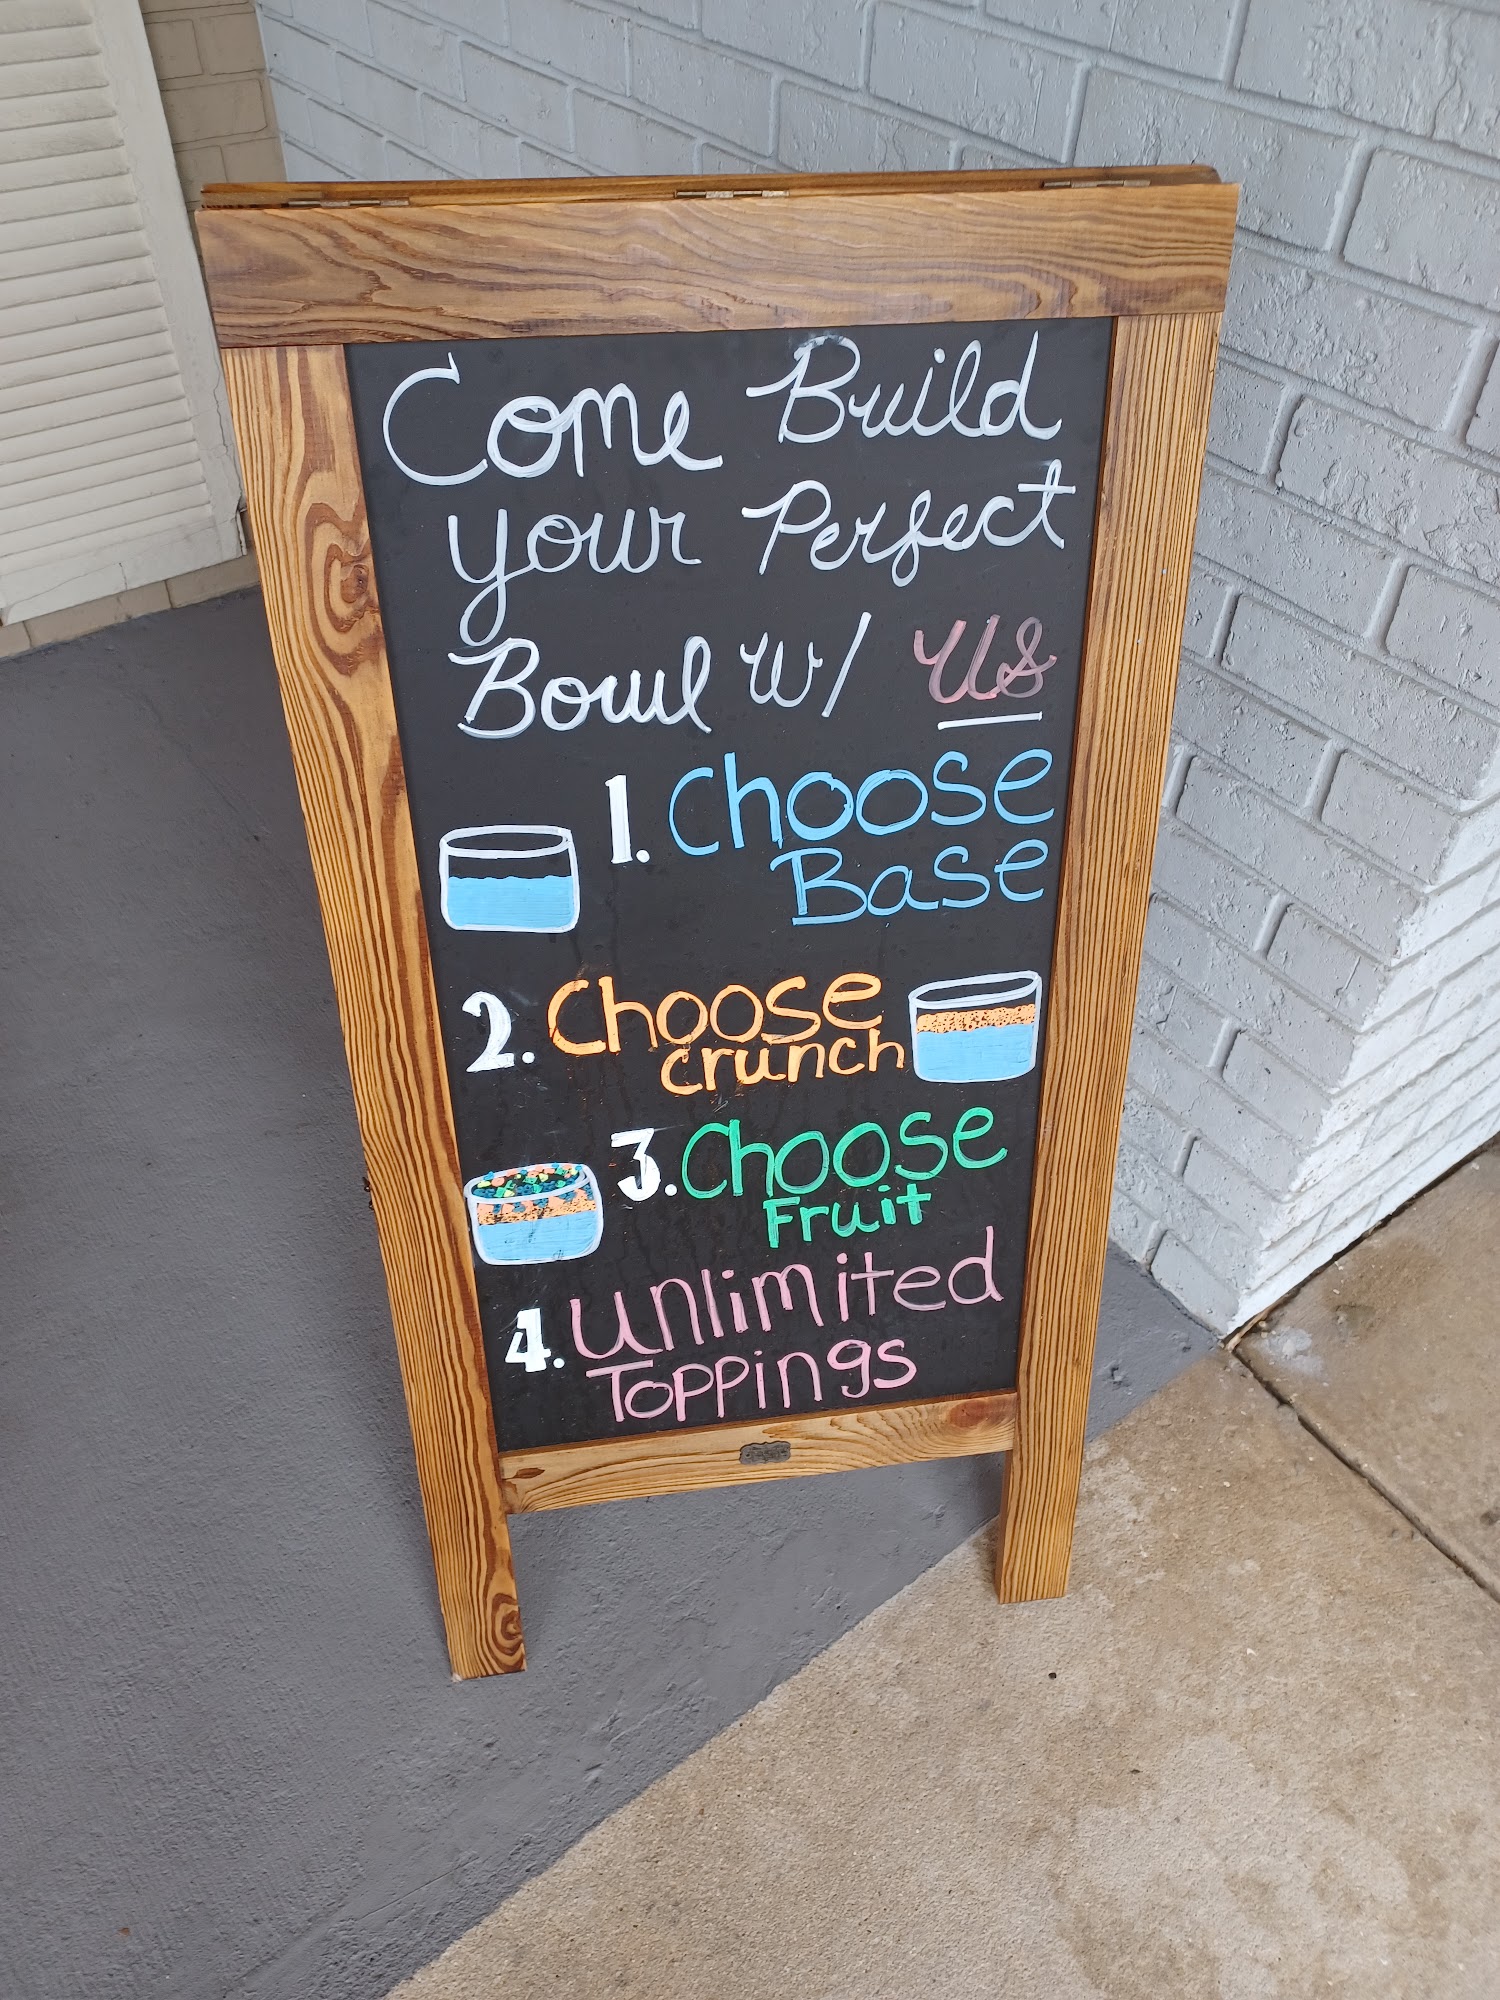 Come Build
your Perfect
Bowl w/ us
1. Choose
Base
2. Choose
crunch
3. Choose
Fruit
4. unlimited
Toppings